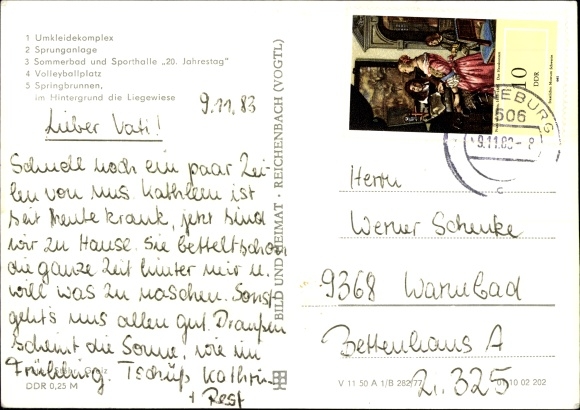 1 Umkleidekomplex
2 Sprunganlage
3 Sommerbad und Sporthalle „20. Jahrestag"
4 Volleyballplatz
5 Springbrunnen,
im Hintergrund die Liegewiese
9.11.83
Lieber Vati!
Schnell noch ein paar Zei-
len von uns. Kathleen ist
seit heute krank, jetzt sind
wir zu Hause. Sie bettelt schon
die ganze Zeit hinter mir u.
will was zu naschen. Sonst
geht's uns allen gut. Draußen
scheint die Sonne, wie im
Frühling. Tschüß Kathrin
+ Rest
DDR 0,25 M
BILD UND HEIMAT · REICHENBACH (VOGTL)
10
DDR
EBURG
506
9.11.83-8
c
Herrn
Werner Schenke
9368 Warmbad
Bettenhaus A
Zi. 325
V 11 50 A 1/B 282/77
10 02 202